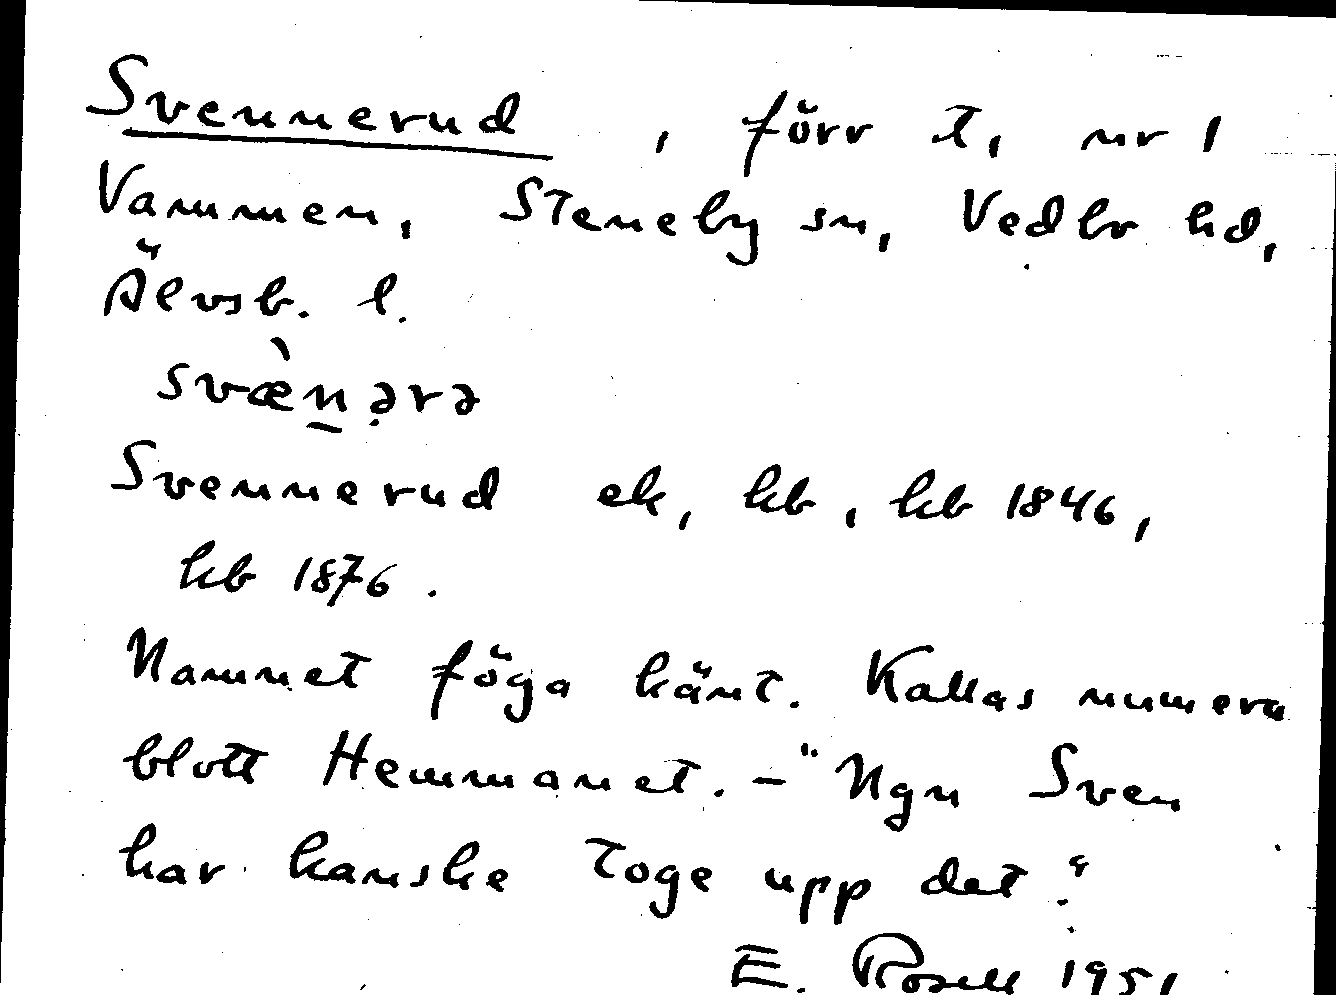 Svennerud, förr t, nr 1
Vammen, Steneby sn, Vedbo hd,
Älvsb. l.
svæ̀n̲ə̣rə
Svennerud ek, kb, hb 1846,
hb 1876.
Namnet föga känt. Kallas numera
blott Hemmanet. – "Ngn Sven
har kanske toge upp det."
E. Rosell 1951